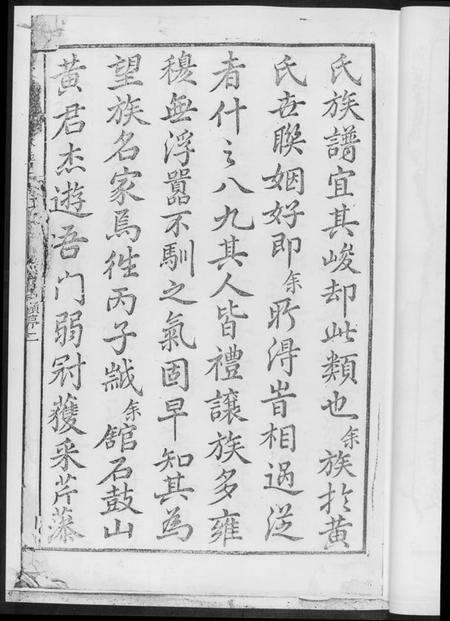 氏族譜宜其峻却此類也余族於黃
氏世聯姻好即余所得昔相過從
者什之八九其人皆禮讓族多雍
穆無浮囂不馴之氣固早知其為
望族名家焉徃丙子誠余舘石鼓山
黃君杰遊吾門弱冠獲采芹藻